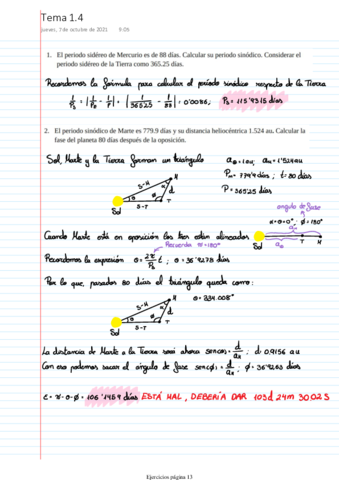 Tema 1.4
jueves, 7 de octubre de 2021 9:05
1. El periodo sidéreo de Mercurio es de 88 días. Calcular su periodo sinódico. Considerar el
periodo sidéreo de la Tierra como 365.25 días.
Recordemos la fórmula para calcular el período sinódico respecto de la Tierra
1/Ps = |1/Pe - 1/P| = |1/365'25 - 1/88| = 0'0086, Ps = 115'9315 días
2. El periodo sinódico de Marte es 779.9 días y su distancia heliocéntrica 1.524 au. Calcular la
fase del planeta 80 días después de la oposición.
Sol, Marte y la Tierra forman un triángulo
a⊕ = 1au, aₘ = 1'524au
Pₘ = 779'9 días, t = 80 días
P = 365'25 días
S-M M
d
S-T T
Sol
angulo de fase
α = θ = 0°, ϕ = 180°
Cuando Marte está en oposición los tres están alineados
Recuerda π = 180°
Sol T M
Recordemos la expresión θ = 2π/Ps t, θ = 36'9278 días
Por lo que, pasados 80 días el triángulo queda como:
S-M M
d
S-T T
Sol
La distancia de Marte a la Tierra será ahora
Con eso podemos sacar el angulo de fase
C = π - θ - ϕ = 106'1459 días ESTÁ MAL, DEBERÍA DAR 103d 24m 30.02s
Ejercicios página 13